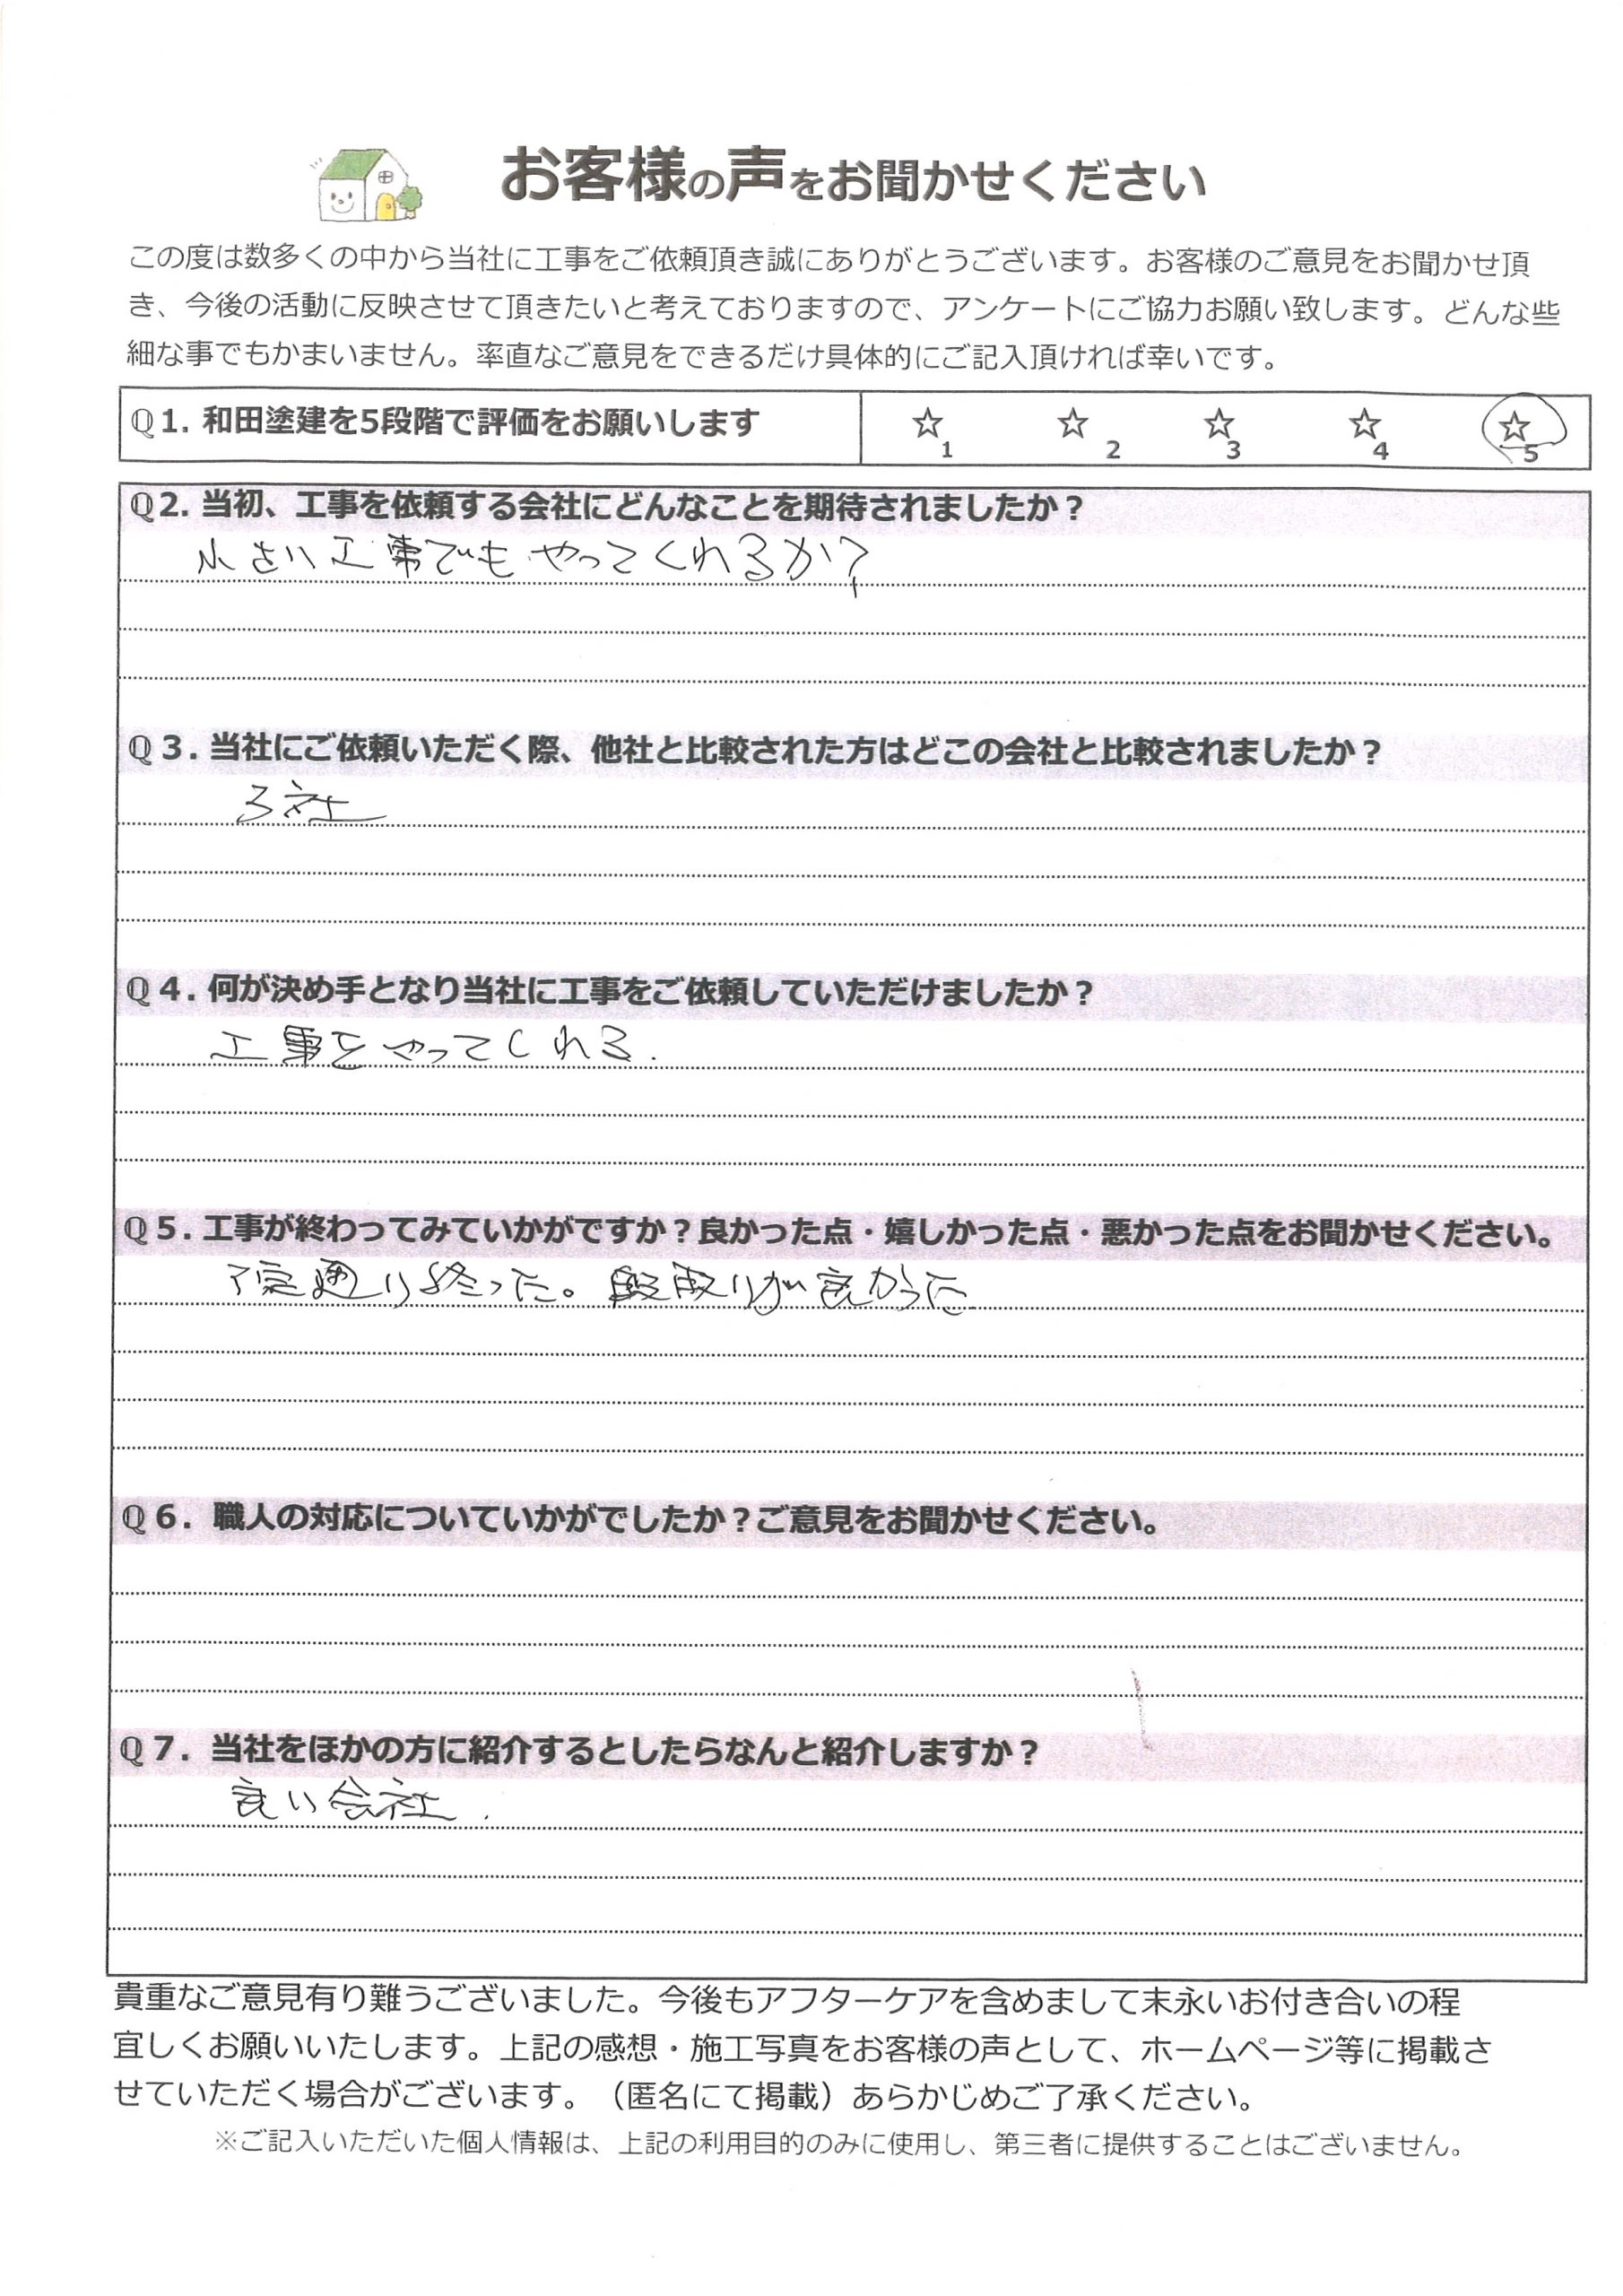 お客様の声をお聞かせください
この度は数多くの中から当社に工事をご依頼頂き誠にありがとうございます。お客様のご意見をお聞かせ頂
き、今後の活動に反映させて頂きたいと考えておりますので、アンケートにご協力お願い致します。どんな些
細な事でもかまいません。率直なご意見をできるだけ具体的にご記入頂ければ幸いです。
Q1. 和田塗建を5段階で評価をお願いします ☆1 ☆2 ☆3 ☆4 ☆5
Q2. 当初、工事を依頼する会社にどんなことを期待されましたか？
小さい工事でもやってくれるか?
Q３. 当社にご依頼いただく際、他社と比較された方はどこの会社と比較されましたか？
3社
Q４. 何が決め手となり当社に工事をご依頼していただけましたか？
工事をやってくれる.
Q５. 工事が終わってみていかがですか？良かった点・嬉しかった点・悪かった点をお聞かせください。
予定通り終った。段取りが良かった
Q６. 職人の対応についていかがでしたか？ご意見をお聞かせください。
Q７. 当社をほかの方に紹介するとしたらなんと紹介しますか？
良い会社.
貴重なご意見有り難うございました。今後もアフターケアを含めまして末永いお付き合いの程
宜しくお願いいたします。上記の感想・施工写真をお客様の声として、ホームページ等に掲載さ
せていただく場合がございます。（匿名にて掲載）あらかじめご了承ください。
※ご記入いただいた個人情報は、上記の利用目的のみに使用し、第三者に提供することはございません。